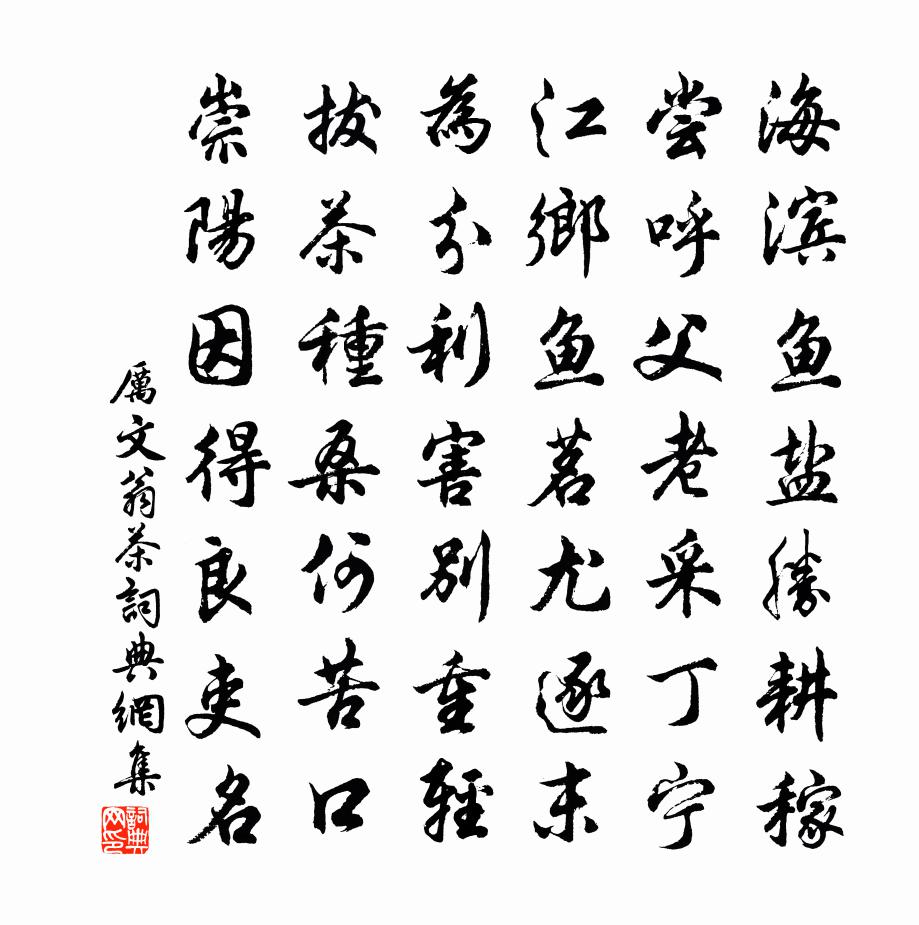 海滨鱼盐勝耕稼
尝呼父老采丁宁
江鄉鱼茗尤逐末
為分利害別重輕
拔茶種桑何苦口
崇陽因得良吏名
厲文翁茶詞典網集
詞典网印